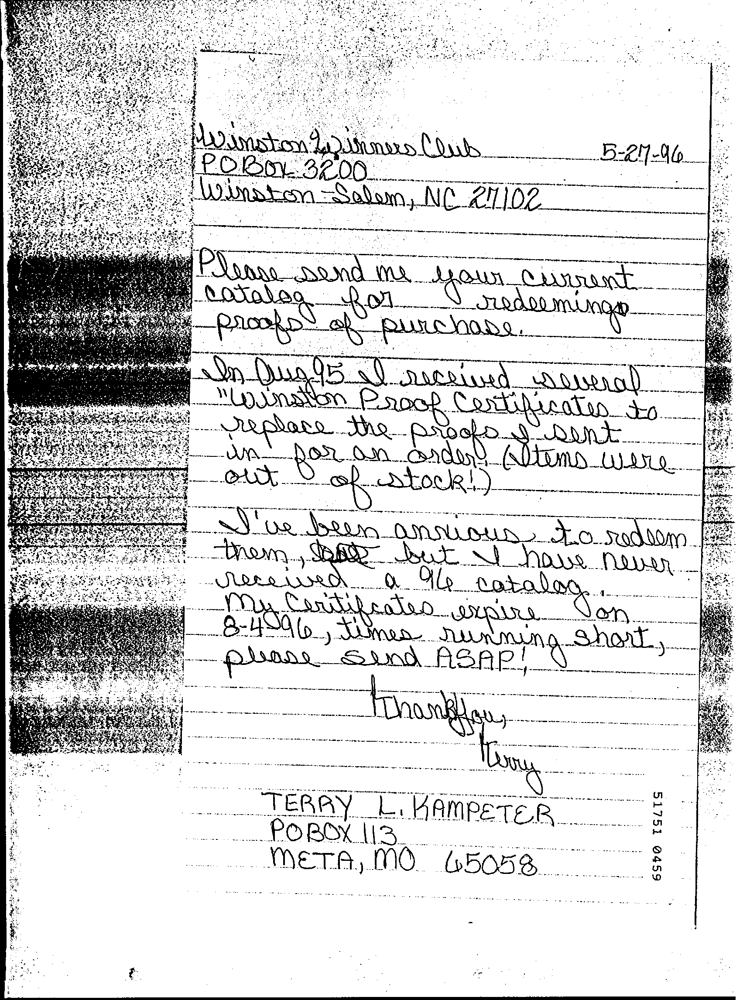 Winston Winners Club 5-27-96
PO BOX 3200
Winston-Salem, NC 27102
Please send me your current
catalog for redeeming
proofs of purchase.
In Aug 95 I received several
"Winston Proof Certificates to
replace the proofs I sent
in for an order! (Items were
out of stock!)
I've been anxious to redeem
them, but I have never
received a 96 catalog.
My Ceritifcates expire on
8-4-96, times running short,
please send ASAP!
Thank You,
Terry
TERRY L. KAMPETER
PO BOX 113
META, MO 65058
51751 0459